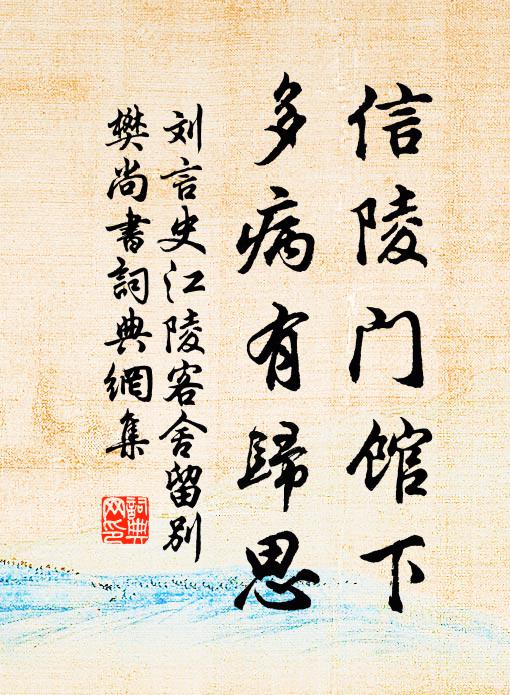 信陵门馆下
多病有歸思
刘言史江陵客舍留别
樊尚書詞典網集
詞典
网印